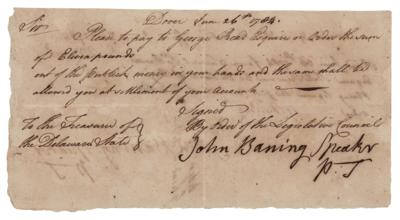 Dover Jan 26th 1784.
Sir
Please to pay to George Read Esquire or Order the sum
of Eleven pounds
out of the publick money in your hands and the same shall be
allowed you at settlement of your Accounts
Signed
By Order of the Legislative Council
To the Treasurer of
the Delaware State
John Baning Speaker
P. T